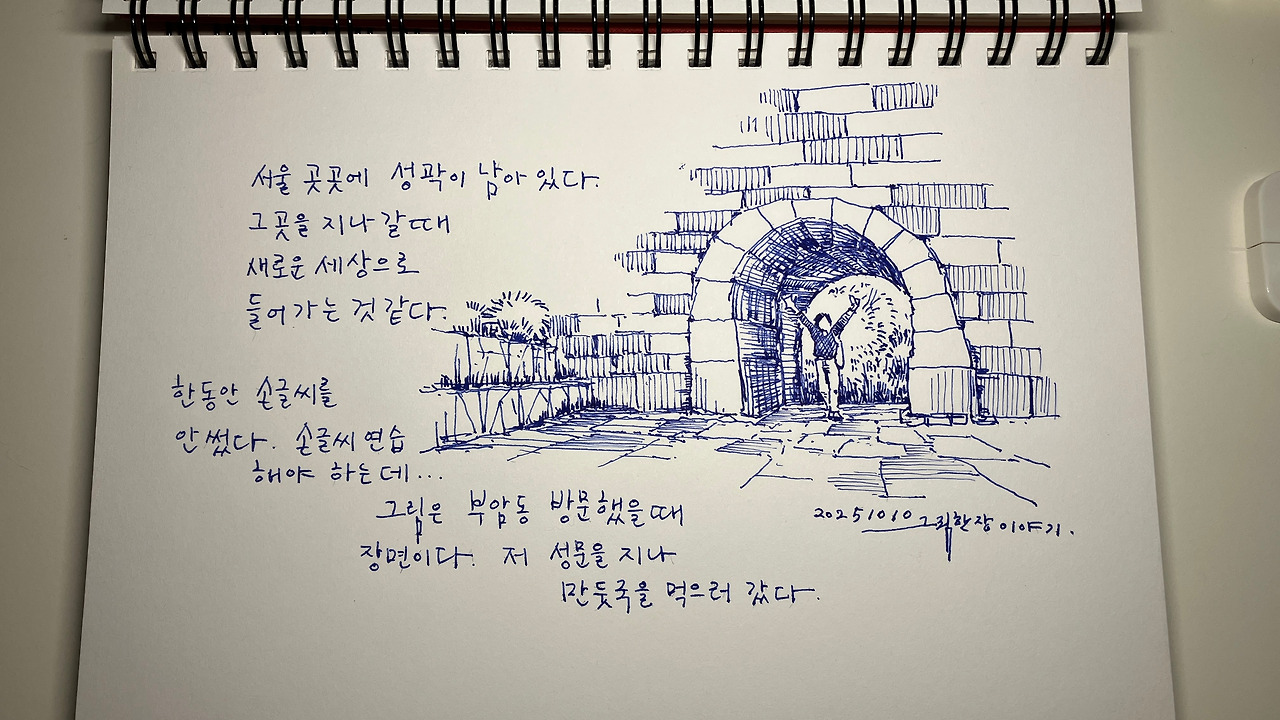 서울 곳곳에 성곽이 남아 있다.
그곳을 지나갈때
새로운 세상으로
들어가는 것 같다.
한동안 손글씨를
안썼다. 손글씨 연습
해야 하는데...
그림은 부암동 방문했을때
장면이다. 저 성문을 지나
만둣국을 먹으러 갔다.
20251010 그림한장이야기.